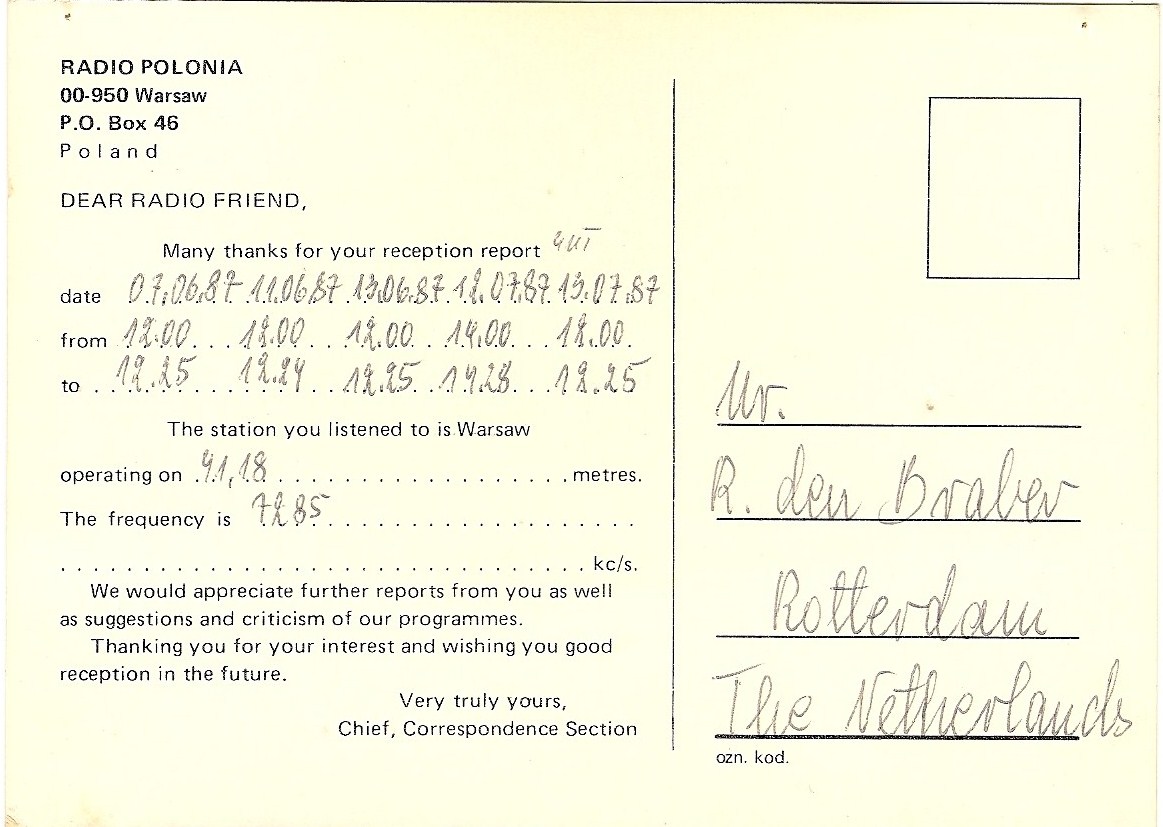 RADIO POLONIA
00-950 Warsaw
P.O. Box 46
Poland
DEAR RADIO FRIEND,
Many thanks for your reception report GMT
date 07.06.87 11.06.87 13.06.87 12.07.87 13.07.87
from 12.00 . . . 12.00 . . . 12.00 . . . 14.00 . . . 12.00 .
to . 12.25 . . . 12.24 . . . 12.25 . . 14.28 . . . 12.25
The station you listened to is Warsaw
operating on . 41,18 . . . . . . . . . . . . . . . . . . metres.
The frequency is 7285 . . . . . . . . . . . . . . . . . . .
. . . . . . . . . . . . . . . . . . . . . . . . . . . . . . . . kc/s.
We would appreciate further reports from you as well
as suggestions and criticism of our programmes.
Thanking you for your interest and wishing you good
reception in the future.
Very truly yours,
Chief, Correspondence Section
Mr.
R. den Braber
Rotterdam
The Netherlands
ozn. kod.